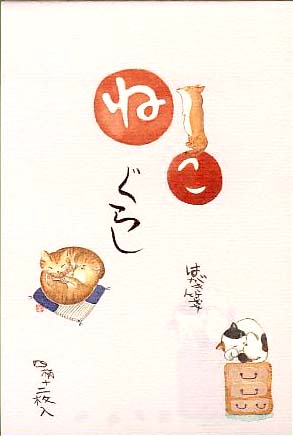 ねこ
ぐらし
はがき
四柄十二枚入